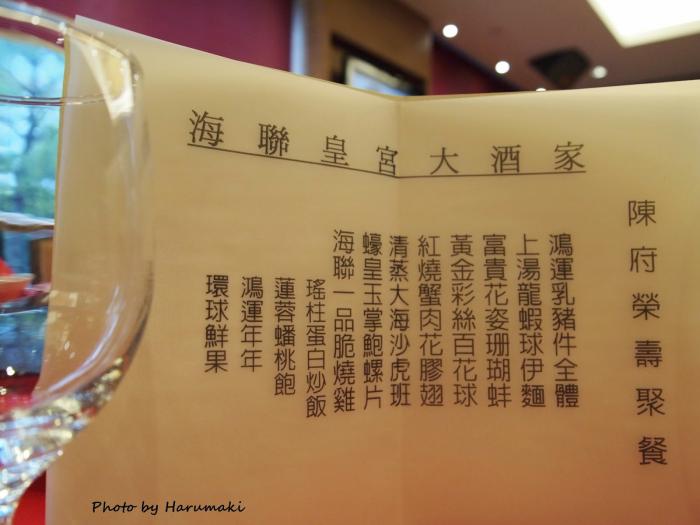 海聯皇宮大酒家
陳府榮壽聚餐
鴻運乳豬件全體
上湯龍蝦球伊麵
富貴花姿珊瑚蚌
黃金彩絲百花球
紅燒蟹肉花膠翅
清蒸大海沙虎班
蠔皇玉掌鮑螺片
海聯一品脆燒雞
瑤柱蛋白炒飯
蓮蓉蟠桃飽
鴻運年年
環球鮮果
Photo by Harumaki